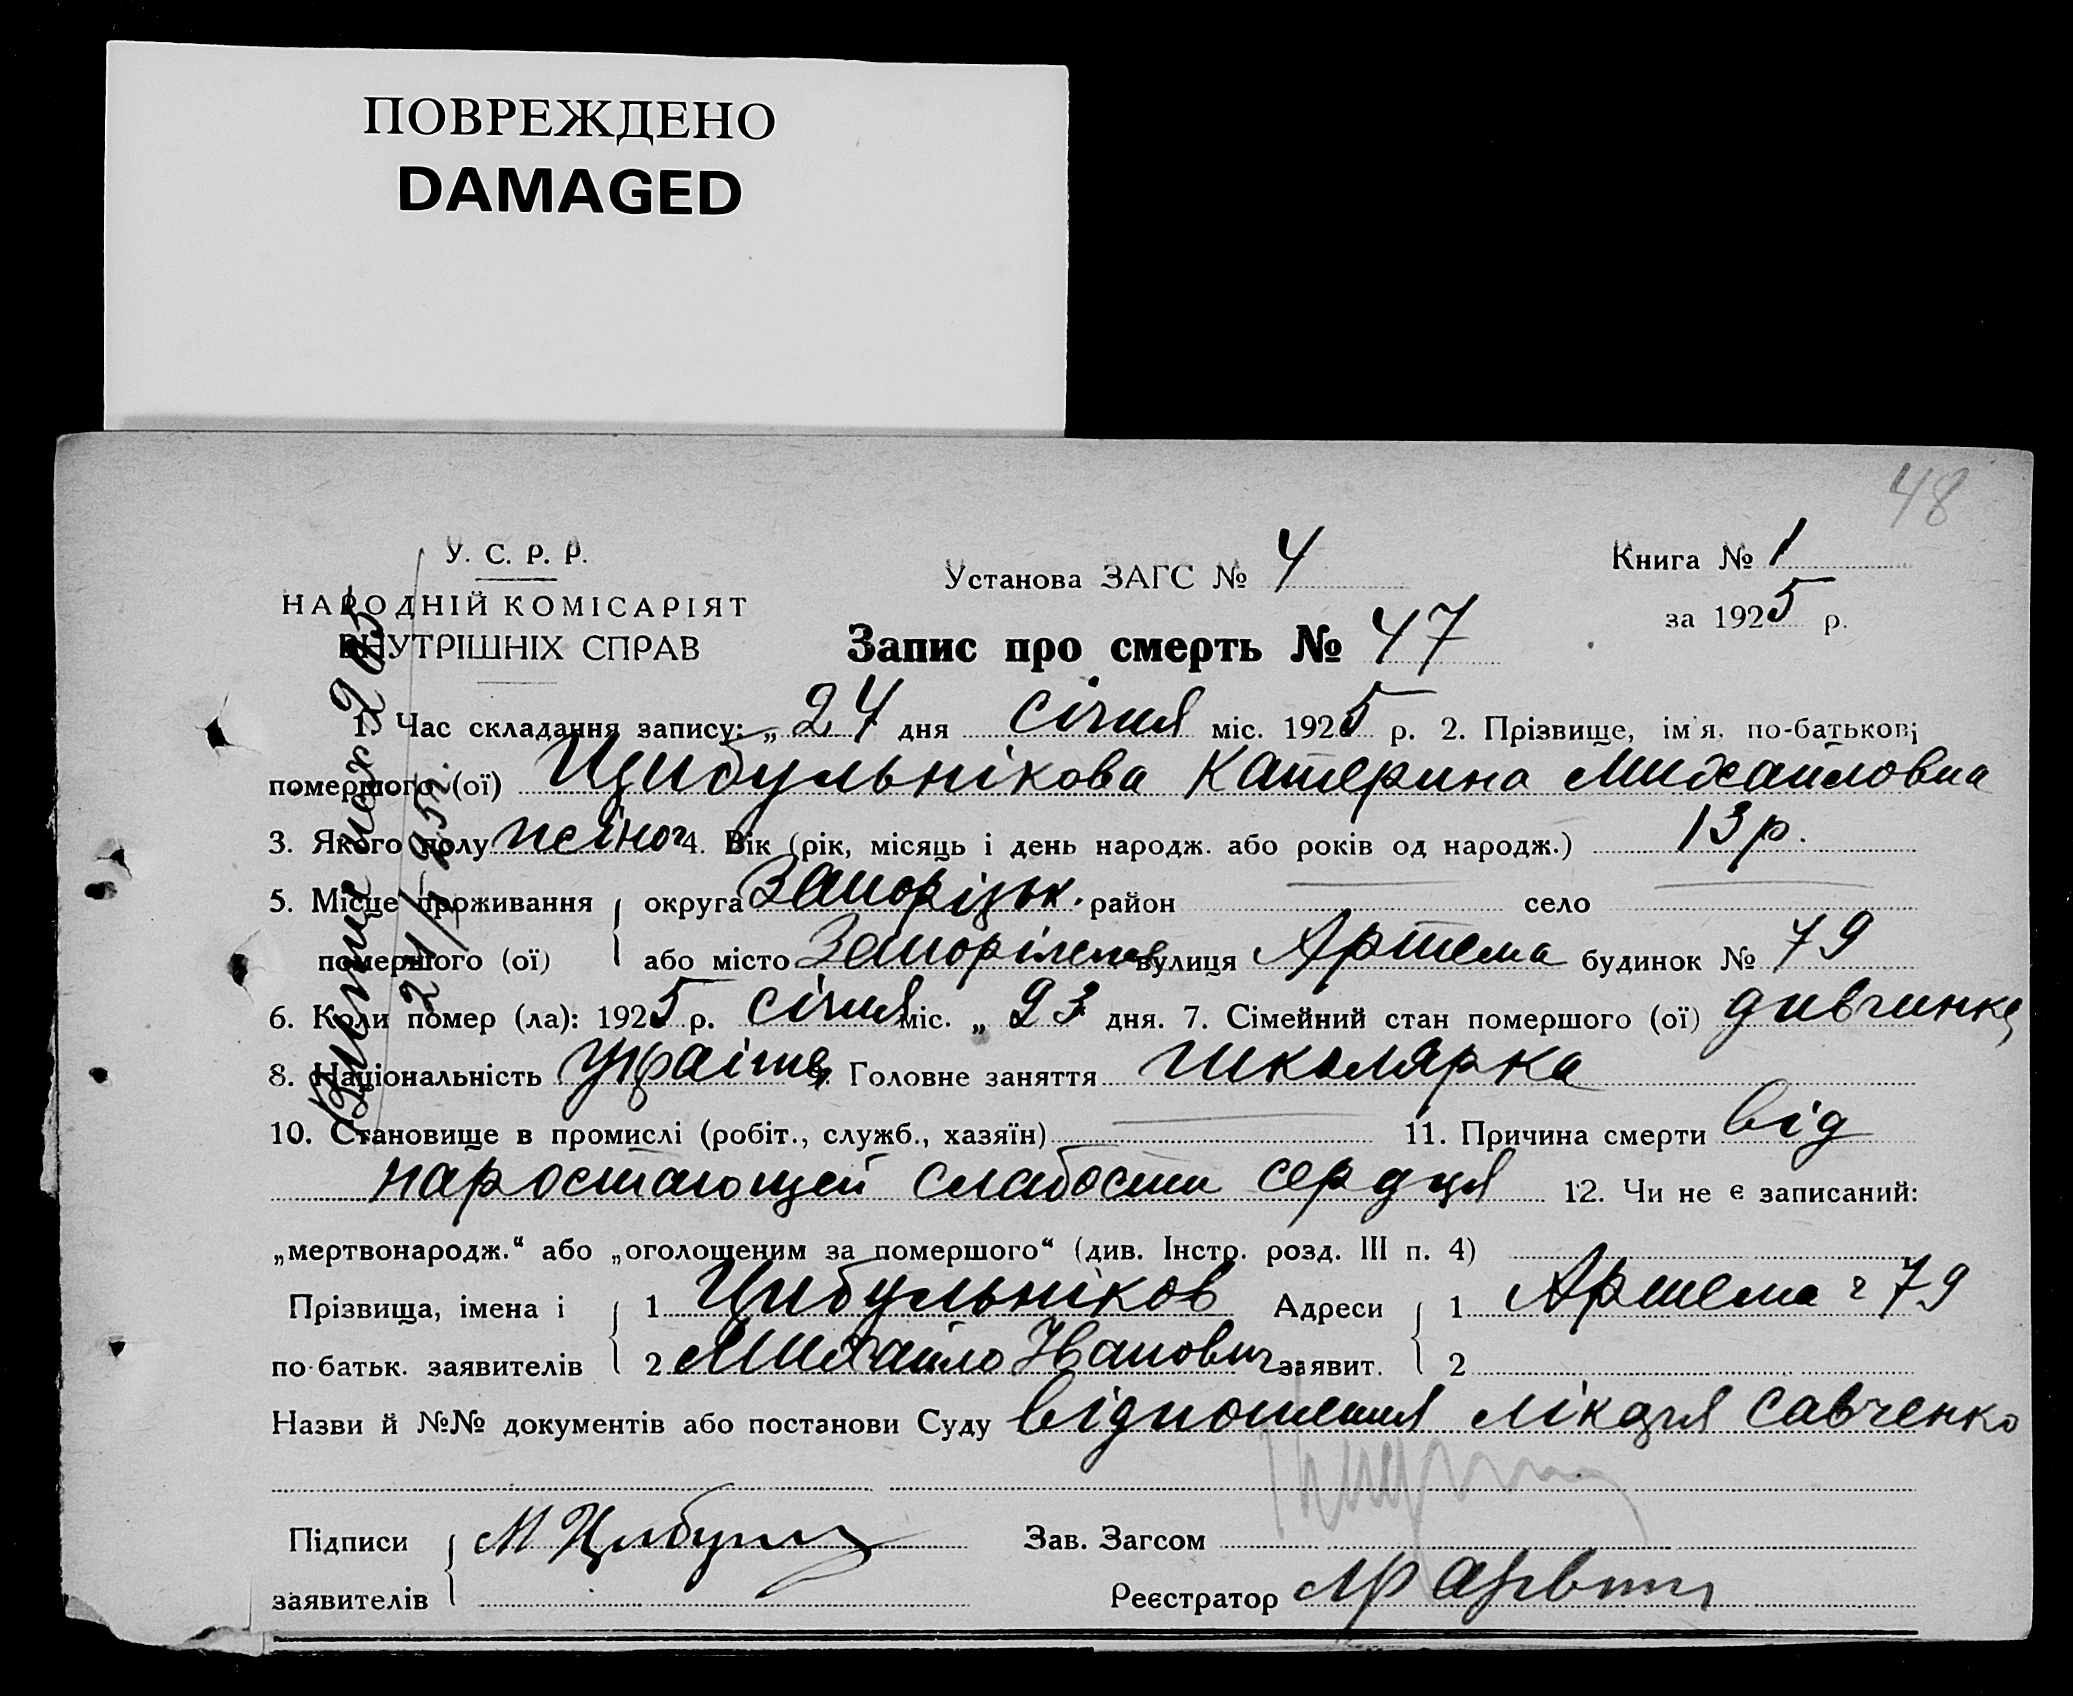 ПОВРЕЖДЕНО
DAMAGED
48
У. С. Р. Р.
НАРОДНІЙ КОМІСАРІЯТ
ВНУТРІШНІХ СПРАВ
Установа ЗАГС № 4
Книга № 1
за 1925 р.
Запис про смерть № 47
1. Час складання запису: „ 24 дня січня міс. 1925 р. 2. Прізвище, ім'я, по-батькові
помершого (ої) Цибульнікова Катерина Михайловна
3. Якого полу жіноч 4. Вік (рік, місяць і день народж. або років од народж.) 13 р.
5. Місце проживання округа Запорізьк. район село
помершого (ої) або місто вулиця Артема будинок № 79
6. Коли помер (ла): 1925 р. січня міс. „ 23 дня. 7. Сімейний стан помершого (ої) дивчинка
8. Національність Головне заняття школярка
10. Становище в промислі (робіт., служб., хазяїн) 11. Причина смерти від
наростающей слабости сердця 12. Чи не є записаний:
„мертвонародж.“ або „оголошеним за помершого“ (див. Інстр. розд. III п. 4)
Прізвища, імена і 1 Цибульніков Адреси 1 Артема 79
по-батьк. заявителів 2 Михайло Іванович заявит. 2
Назви й №№ документів або постанови Суду відношення лікаря Савченко
Підписи М Зав. Загсом
заявителів Реєстратор